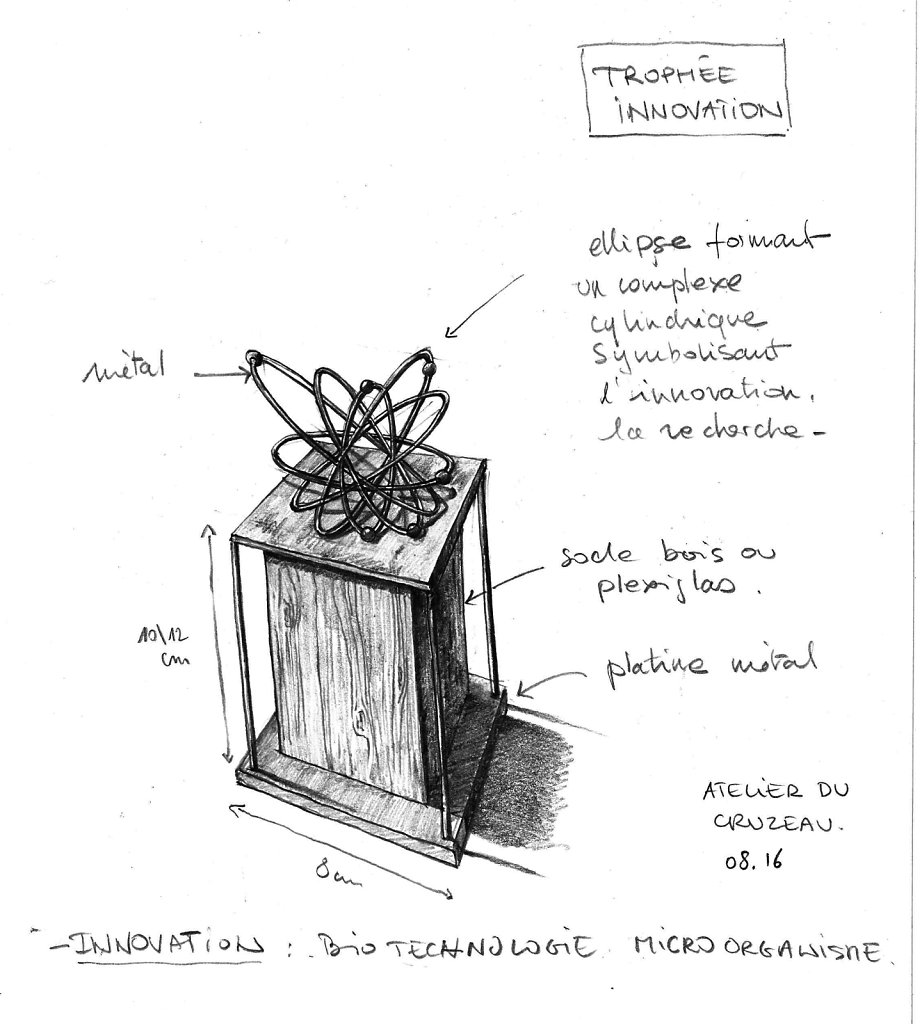 TROPHÉE
INNOVATION
ellipse formant
un complexe
cylindrique
symbolisant
l'innovation.
la recherche -
mètal
socle bois ou
plexiglas.
10\12
cm
platine mètal
ATELIER DU
CRUZEAU.
08.16
8cm
- INNOVATION : BIOTECHNOLOGIE MICROORGANISME.